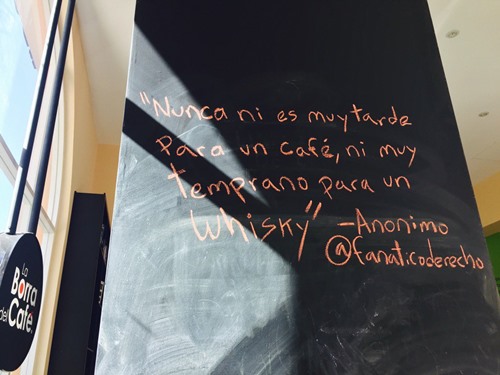 "Nunca ni es muy tarde
para un café, ni muy
temprano para un
whisky" -Anonimo
@fanaticoderecho
La
Borra
del
Café.